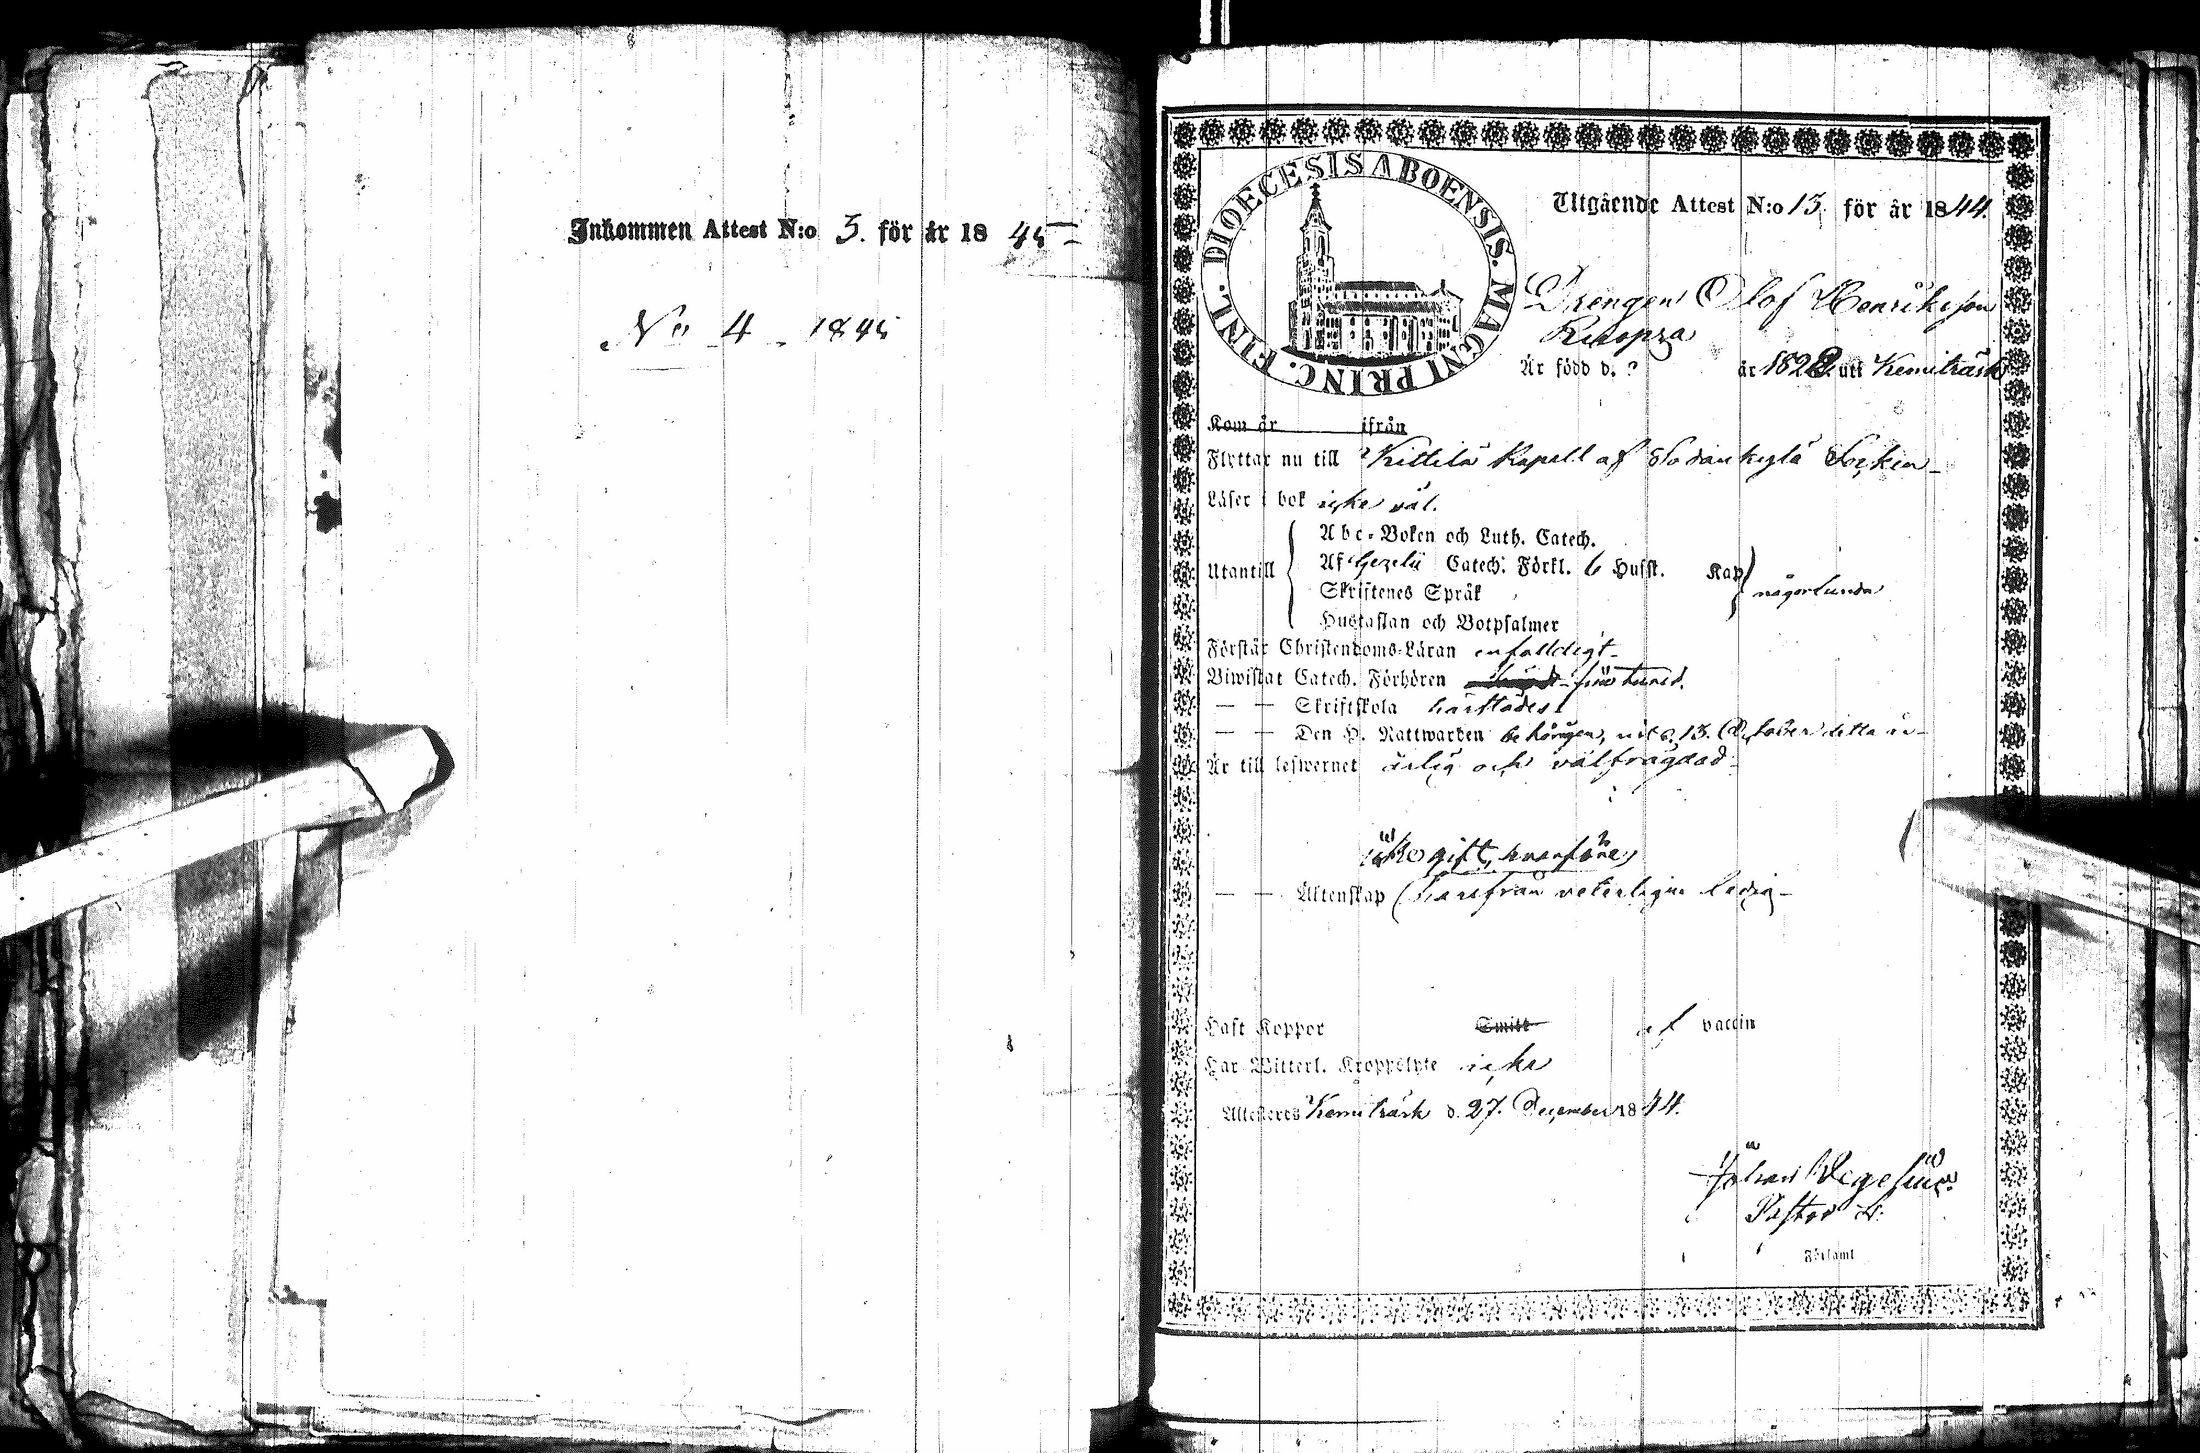 Inkommen Attest N:o 3. för år 1845
No 4. 1845
DIOECESIS ABOENSIS. MAGNI PRINC. FINL.
Utgående Attest N:o 13. för år 1844.
Drengen Olof Henriksson
Är född d. ? år 1822. uti Kemiträsk
Kom år ifrån
Flyttar nu till Kittilä Kapell af Sodankylä Socken
Läser i bok icke väl.
Abc-Boken och Luth. Catech.
Utantill Af Gezelii Catech. Förkl. 6 Hufst. Kap någorlunda
Skriftenes Språk
Hustaflan och Botpsalmer
Förstår Christendoms-Läran enfalldigt
Biwistat Catech. Förhören
— — Skriftskola härstädes
— — Den H. Nattwarden behörigen, sist d. 13. October detta år
Är till lefwernet ärlig och välfrägdad
icke gift, hvarföre
— — Äktenskap härifrån veterligen ledig
Haft Koppor Smitt af vaccin
Har Witterl. Kroppslyte icke
Attesteras Kemiträsk d. 27. December 1844.
Johan Wegelius
Pastor
Församl